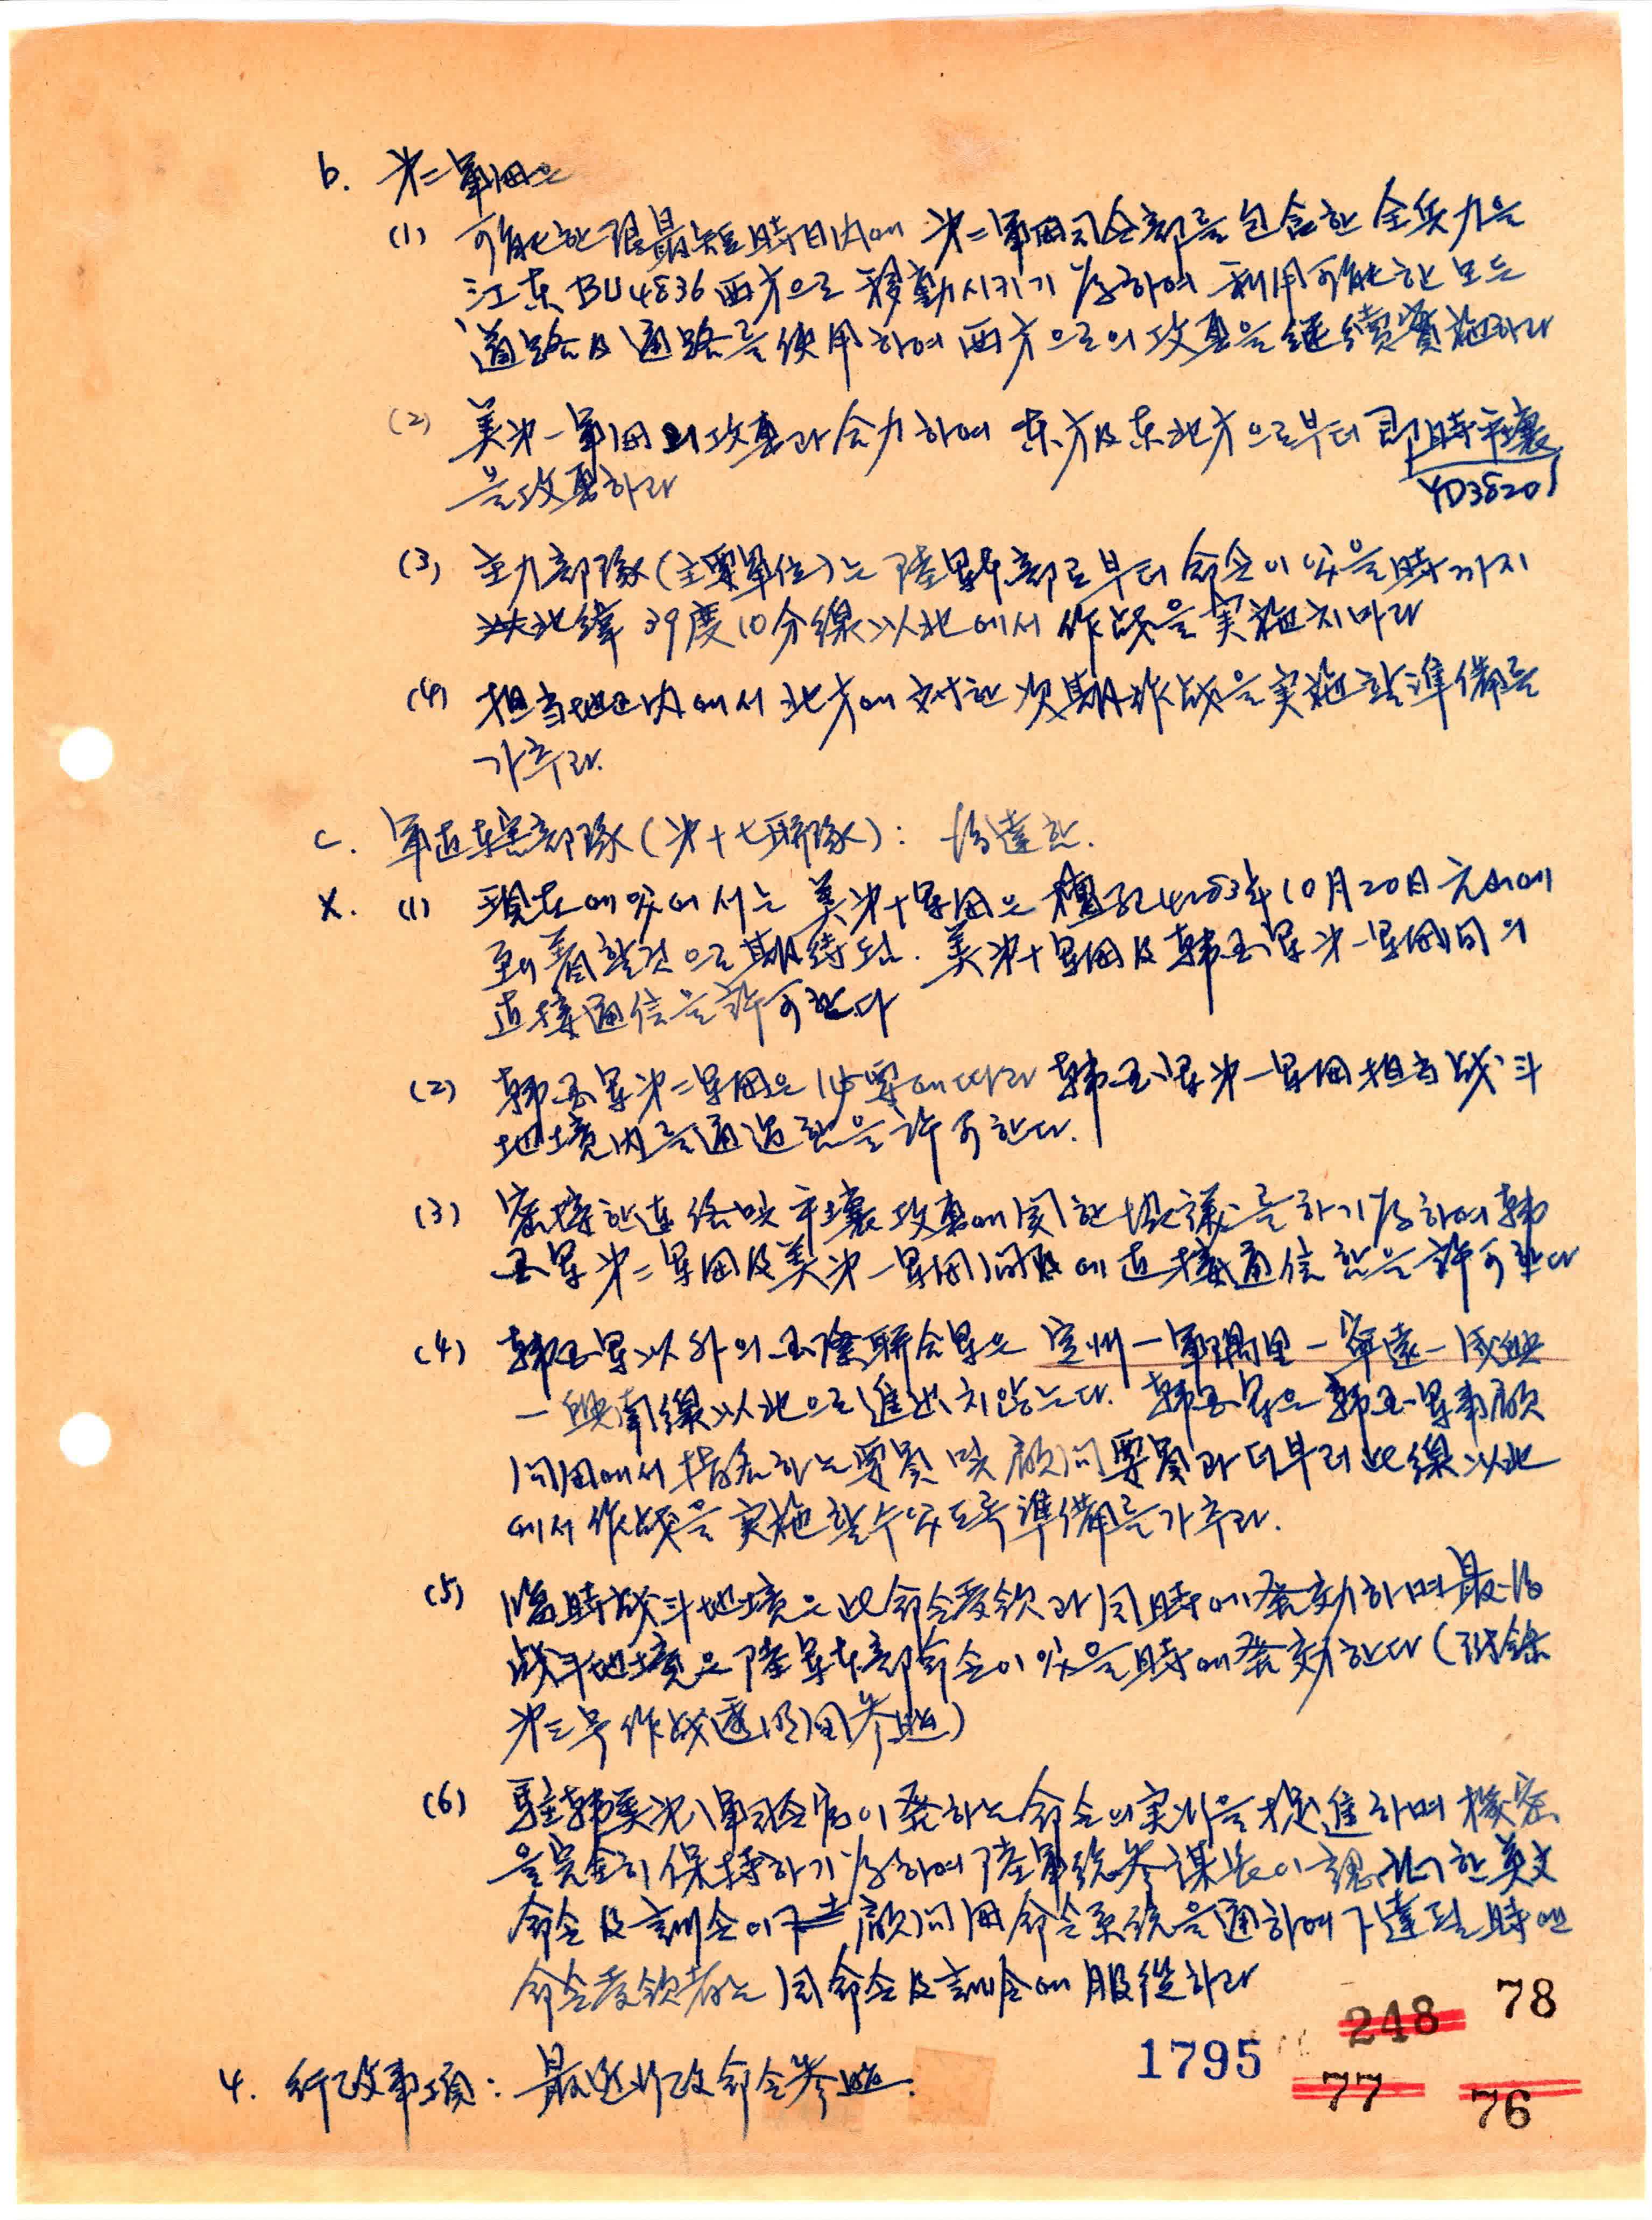 b. 第二軍団은
(1) 可能한 限 最短時日内에 第二軍団司令部를 包含한 全兵力을
江东 BU4836 西方으로 移動시키기 為하여 利用可能한 모든
道路 及 通路를 使用하여 西方으로의 攻擊을 継続實施하라
(2) 美第一軍団의 攻擊과 合力하여 东方及东北方으로부터 即時平壤
YD3820
을 攻擊하라
(3) 主力部隊(主要單位)는 陸軍本部로부터 命令이 있을 時까지
北緯 39度10分線以北에서 作战을 実施치마라
(4) 担当地区内에서 北方에 対한 次期作战을 実施할 準備를
가추라.
C. 軍直轄部隊(第十七聯隊): 後達함.
X. (1) 現在에 있어서는 美第十军団은 檀紀4283年10月20日 元山에
到着할것으로 期待됨. 美第十军団及韓国军第一军団间의
直接通信을 許可한다
(2) 韓国军第二军団은 必要에 따라 韓国军第一军団担当战斗
地境内를 通过함을 許可한다.
(3) 密接한 连络 및 平壤攻擊에 関한 協議를 하기 為하여 韓
国军第二军団及美第一军団间에 直接通信함을 許可한다
(4) 韓国军以外의 国際联合军은 定州—軍隅里—寧遠—咸興
—興南線以北으로 進出치 않는다. 韓国军은 韓国军事顧
问団에서 指名하는 要員 및 顧问要員과 더부러 此線以北
에서 作战을 実施할 수 있도록 準備를 가추라.
(5) 臨時战斗地境은 此命令受領과 同時에 発効하며 最後
战斗地境은 陸军本部命令이 있을 時에 発効한다 (附錄
第三号 作战透明図参照)
(6) 駐韓美第八軍司令官이 発하는 命令의 実行을 捉進하며 機密
을 完全히 保持하기 為하여 陸軍総参謀长이 認可한 英文
命令 及 訓令이 顧问団命令系統을 通하여 下達될 時엔
命令受領者는 同命令及訓令에 服從하라
4. 行政事項: 最近行政命令参照.
1795 248 78
77 76